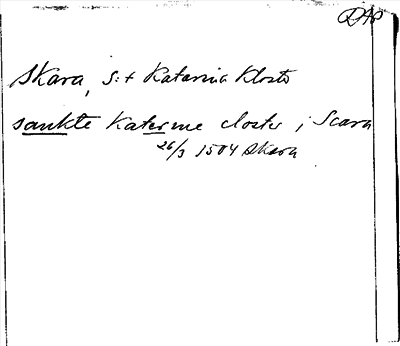 DAP
Skara, S:t Katarina kloster
sankte Katerine closter i Scara
26/3 1504 Skara